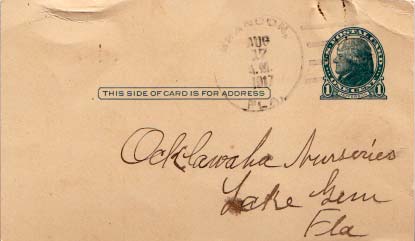 BRANDON,
AUG
17
A.M.
1917
FLA.
U.S. POSTAL CARD
1 CENT 1
THIS SIDE OF CARD IS FOR ADDRESS
Ocklawaha Nurseries
Lake Gem
Fla